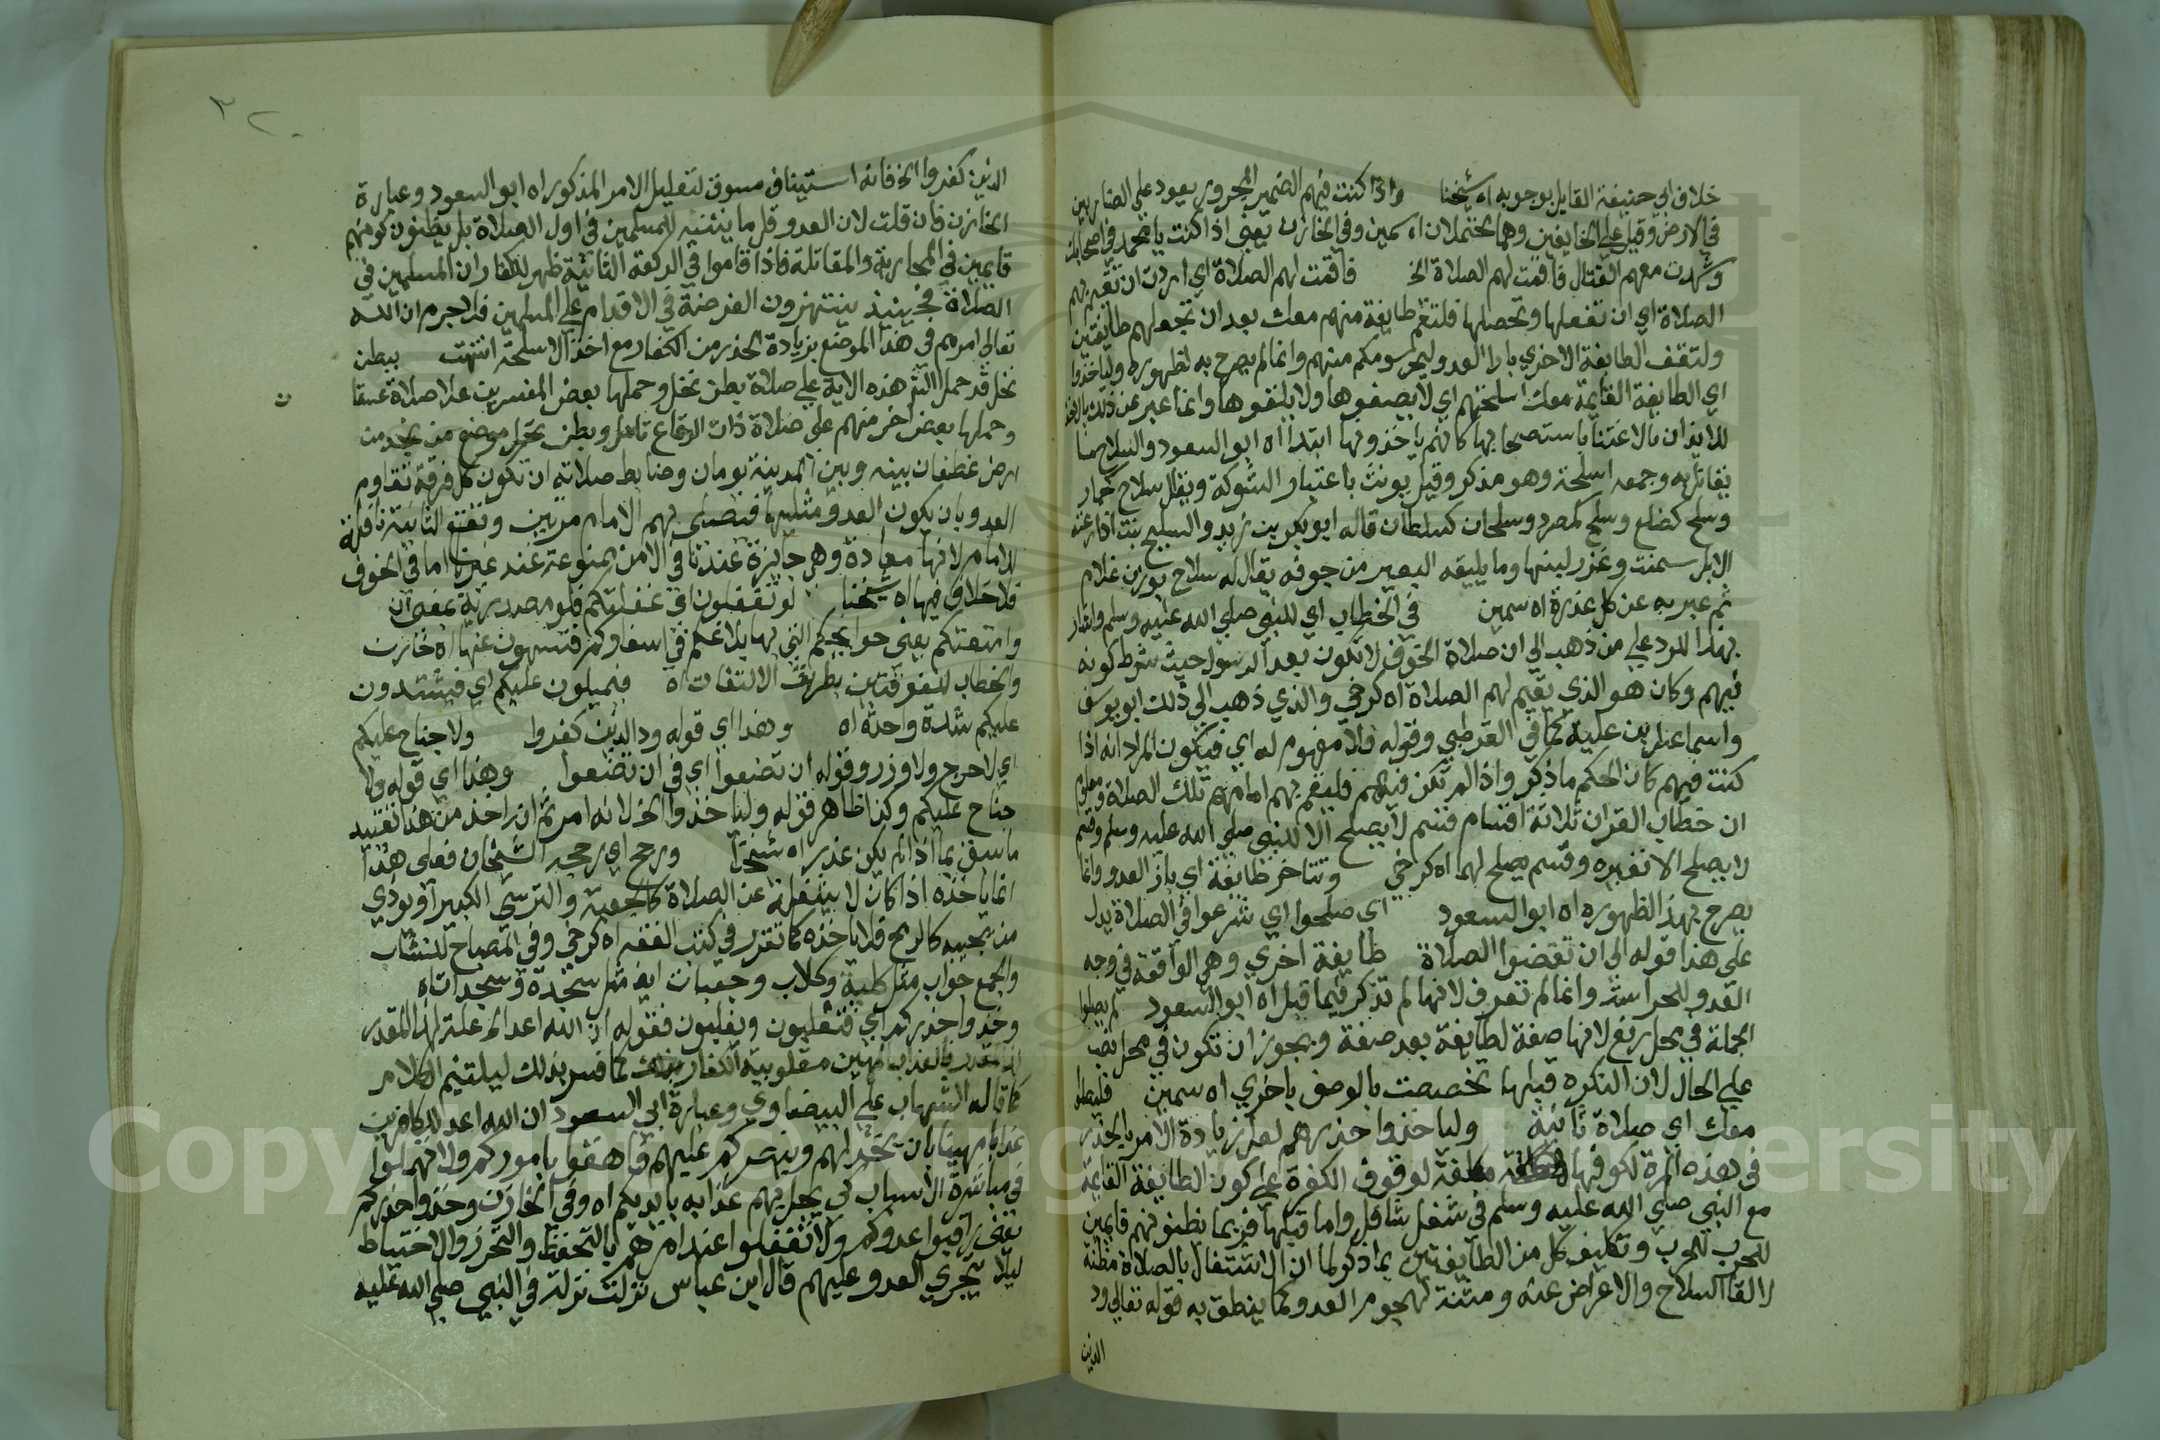 خلاف ابي حنيفة القايل بوجوبه اه شيخنا واذا كنت فيهم الضمير المجرور يعود على الضاربين
في الارض وقيل على الخايفين وهما محتملان اه سمين وفي الخازن يعني اذا كنت يا محمد في اصحابك
وشهدت معهم القتال فاقمت لهم الصلاة الخ فاقمت لهم الصلاة اي اردت ان تقيم بهم
الصلاة اي ان تفعلها وتحصلها فلتقم طايفة منهم معك بعد ان تجعلهم طايفتين
ولتقف الطايفة الاخري بازا العدو ليحرسوكم منهم وانما لم يصرح به لظهوره ولياخذوا
اي الطايفة القايمة معك اسلحتهم اي لا يضعوها ولا يلقوها وانما عبر عن ذلك بالاخذ
للايذان بالاعتنا باستصحابها كانهم ياخذونها ابتدا اه ابو السعود والسلاح ما
يقاتل به وجمعه اسلحة وهو مذكر وقيل يونث باعتبار الشوكة ويقال سلاح كحمار
وسلح كضلع وسلح كصرد وسلحان كسلطان قاله ابو بكر بن زيد والسليح نبت اذا رعته
الابل سمنت وغزر لبنها وما يلقيه البعير من جوفه يقال له سلاح بوزن غلام
ثم عبر به عن كل عذرة اه سمين في الخطاب اي للنبي صلي الله عليه وسلم واشار
بهذا للرد علي من ذهب الي ان صلاة الخوف لا تكون بعد الرسول حيث شرط كونه
فيهم وكان هو الذي يقيم لهم الصلاة اه كرخي والذي ذهب الي ذلك ابو يوسف
واسماعيل بن علية كما في القرطبي وقوله فلا مفهوم له اي فيكون المراد انه اذا
كنت فيهم كان الحكم ما ذكر واذا لم تكن فيهم فليقم بهم امامهم تلك الصلاة ومعلوم
ان خطاب القران ثلاثة اقسام قسم لا يصلح الا للنبي صلي الله عليه وسلم وقسم
لا يصلح الا لغيره وقسم يصلح لهما اه كرخي وتتاخر طايفة اي بازا العدو وانما
يصرح بهذا لظهوره اه ابو السعود اي صلحوا اي شرعوا في الصلاة يدل
علي هذا قوله الي ان تقضوا الصلاة طايفة اخري وهي الواقفة في وجه
العدو للحراسة وانما لم تعرف لانها لم تذكر فيما قبل اه ابو السعود لم يصلوا
الجملة في محل رفع لانها صفة لطايفة بعد صفة ويجوز ان تكون في محل نصب
علي الحال لان النكرة قبلها تخصصت بالوصف باخري اه سمين فليصلوا
معك اي صلاة ثانية ولياخذوا حذرهم لعل زيادة الامر بالحذر
في هذه المرة لكونها مظنة لوقوف الكفرة علي كون الطايفة القايمة
مع النبي صلي الله عليه وسلم في شغل شاغل واما قبلها فربما يظنونهم قايمين
للحرب للحرب وتكليف كل من الطايفتين بما ذكر لما ان الاشتغال بالصلاة مظنة
لالقا السلاح والاعراض عنه ومئنة لهجوم العدو كما ينطق به قوله تعالي ود
الذين
٣٢٠
الذين كفروا الخ فانه استيناف مسوق لتعليل الامر المذكور اه ابو السعود وعبارة
الخازن فان قلت لان العدو قل ما يتنبه للمسلمين في اول الصلاة بل يظنون كونهم
قايمين في المحاربة والمقاتلة فاذا قاموا في الركعة الثانية ظهر للكفار ان المسلمين في
الصلاة فحينيذ ينتهزون الفرصة في الاقدام علي المسلمين فلا جرم ان الله
تعالي امرهم في هذا الموضع بزيادة الحذر من الكفار مع اخذ الاسلحة انتهت ببطن
نخل قد حمل الش هذه الاية علي صلاة بطن نخل وحملها بعض المفسرين علا صلاة عسفا
ن
وحملها بعض اخر منهم علي صلاة ذات الرقاع تامل وبطن نخل موضع من نجد من
ارض غطفان بينه وبين المدينة يومان وضابط صلاته ان تكون كل فرقة تقاوم
العدو بان يكون العدو مثلها فيصلي بهم الامام مرتين وتقع الثانية نافلة
للامام لانها معادة وهي جايزة عندنا في الامن ممنوعة عند غيرنا اما في الخوف
فلا خلاف فيها اه شيخنا لو تغفلون اي غفلتكم فلو مصدرية بمعني ان
وامتعتكم يعني حوايجكم التي بها بلاغكم في اسفاركم فتسهون عنها اه خازن
والخطاب للفريقين بطريق الالتفات اه فيميلون عليكم اي فيشدون
عليكم شدة واحدة اه وهذا اي قوله ود الذين كفروا ولا جناح عليكم
اي لا حرج ولا وزر وقوله ان تضعوا اي في ان تضعوا وهذا اي قوله ولا
جناح عليكم وكذا ظاهر قوله ولياخذوا الخ لانه امر ثم ان اخذ من هذا تقييد
ما سبق بما اذا لم يكن عذر اه شيخنا ورجح اي رجحه الشيخان فعلي هذا
انما ياخذه اذا كان لا يشغله عن الصلاة كالجعبة والترس الكبير او يوذي
من بجنبه كالرمح فلا ياخذه كما تقرر في كتب الفقه اه كرخي وفي المصباح للنشاب
والجمع جعاب مثل كلبة وكلاب وجعبات ايضا مثل سجدة وسجدات اه
وخذوا حذركم اي فتغلبون ويغلبون فقوله ان الله اعد الخ علة لهذا المقدر
فالعذاب المهين مغلوبية الكفار كما فسر بذلك ليلتيم الكلام
كما قاله الشهاب علي البيضاوي وعبارة ابي السعود ان الله اعد للكافرين
عذابا مهينا بان يخذلهم وينصركم عليهم فاهتموا باموركم ولا تهملوا
في مباشرة الاسباب كي يحل بهم عذابه بايديكم اه وفي الخازن وخذوا حذركم
يعني راقبوا عدوكم ولا تغفلوا عنه امرهم بالتحفظ والتحرز والاحتياط
ليلا يتجري العدو عليهم قال ابن عباس نزلت نزلت في النبي صلي الله عليه
Copyright © King Saud University